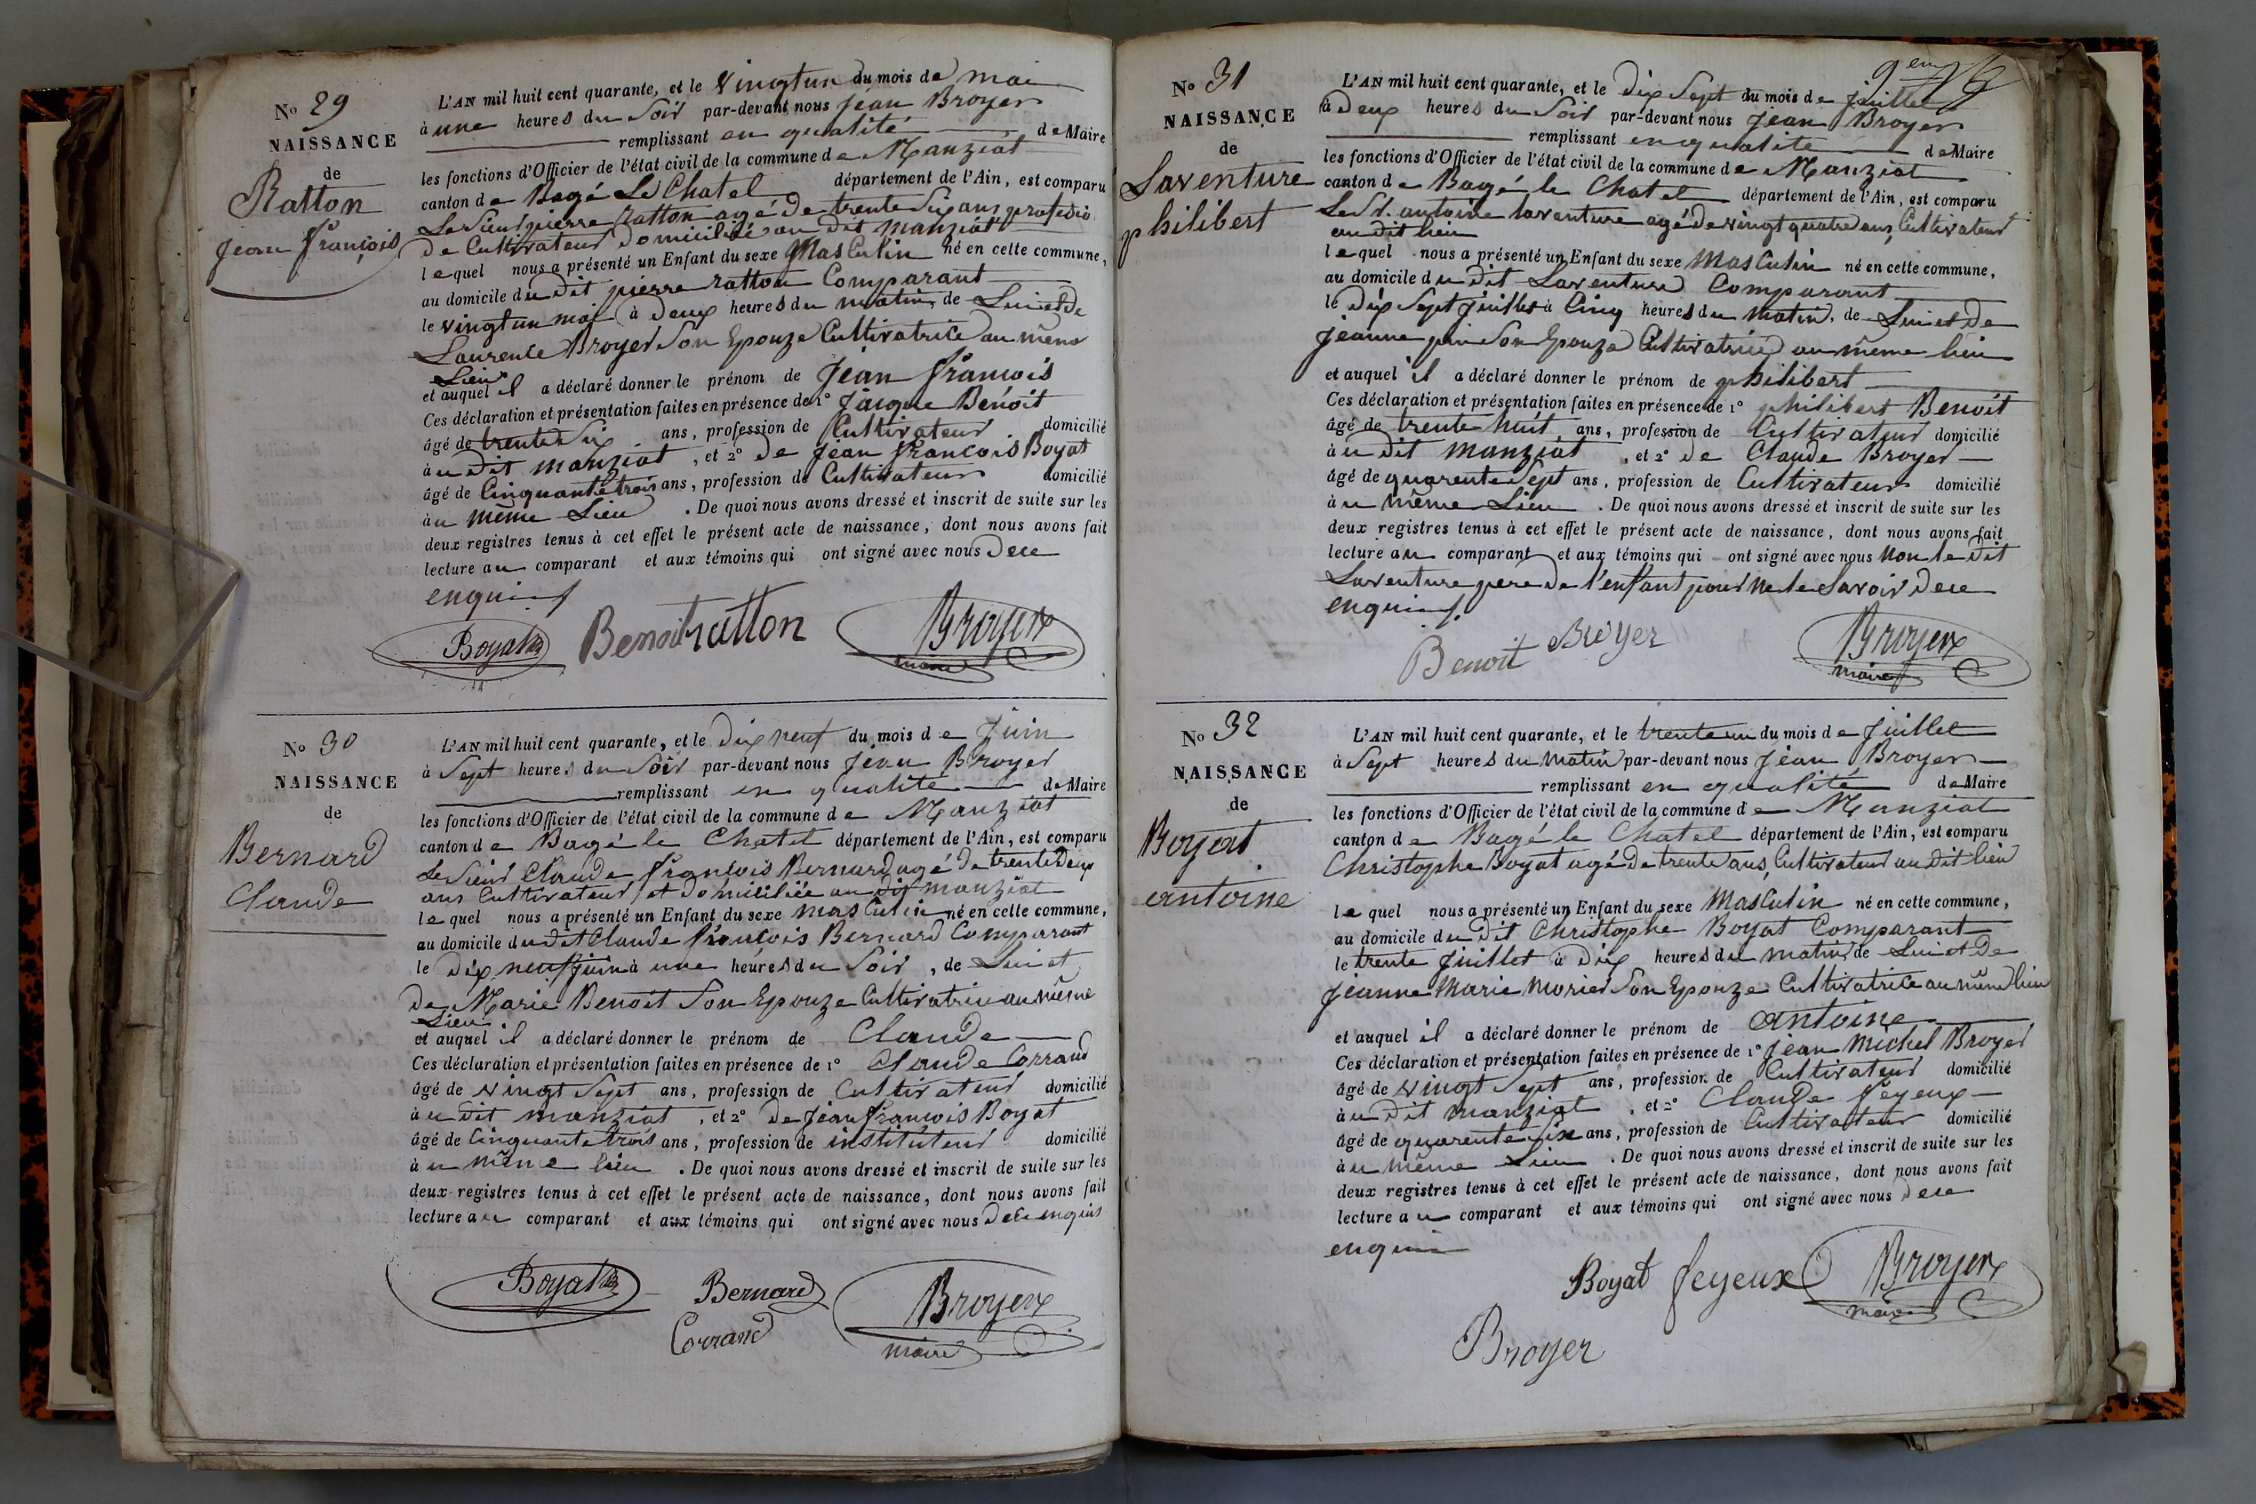 No 29
NAISSANCE
de
Ratton
jean françois
L'AN mil huit cent quarante, et le Vingt un du mois de mai
à une heures du Soir par-devant nous Jean Broyer
remplissant en qualité de Maire
les fonctions d'Officier de l'état civil de la commune de Manziat
canton de Bagé Le Chatel département de l'Ain, est comparu
Le Sieur pierre ratton agé de trente Six ans profession
de Cultivateur domicilié au dit manziat
lequel nous a présenté un Enfant du sexe MasCulin né en cette commune,
au domicile du dit pierre ratton Comparant
le vingt un mai à deux heures du matin, de Lui et de
Laurence Broyer Son Epouze Cultivatrice au même
Lieu
et auquel il a déclaré donner le prénom de Jean françois
Ces déclaration et présentation faites en présence de 1° Jacque Benoit
âgé de trente Six ans, profession de Cultivateur domicilié
àu dit manziat, et 2° de Jean françois Boyat
âgé de Cinquante trois ans, profession de Cultivateur domicilié
àu même Lieu. De quoi nous avons dressé et inscrit de suite sur les
deux registres tenus à cet effet le présent acte de naissance, dont nous avons fait
lecture au comparant et aux témoins qui ont signé avec nous de ce
enquis
Boyat Benoit ratton Broyer
maire
No 30
NAISSANCE
de
Bernard
Claude
L'AN mil huit cent quarante, et le dix neuf du mois de Juin
à Sept heures du Soir par-devant nous Jean Broyer
remplissant en qualité de Maire
les fonctions d'Officier de l'état civil de la commune de Manziat
canton de Bagé le Chatel département de l'Ain, est comparu
Le Sieur Claude françois Bernard agé de trente deux
ans Cultivateur et domicilié au dit manziat
lequel nous a présenté un Enfant du sexe masCulin né en cette commune,
au domicile du dit Claude françois Bernard Comparant
le dix neuf juin à une heures du Soir, de Lui et
de Marie Benoit Son Epouze Cultivatrice au même
Lieu
et auquel il a déclaré donner le prénom de Claude
Ces déclaration et présentation faites en présence de 1° Claude Corrand
âgé de vingt Sept ans, profession de Cultivateur domicilié
àu dit manziat, et 2° de Jean françois Boyat
âgé de Cinquante trois ans, profession de instituteur domicilié
àu même lieu. De quoi nous avons dressé et inscrit de suite sur les
deux registres tenus à cet effet le présent acte de naissance, dont nous avons fait
lecture au comparant et aux témoins qui ont signé avec nous de ce enquis
Boyat Bernard Broyer
Corrand maire
No 31
NAISSANCE
de
Laventure
philibert
9em
L'AN mil huit cent quarante, et le dix Sept du mois de Juillet
à deux heures du Soir par-devant nous Jean Broyer
remplissant en qualité de Maire
les fonctions d'Officier de l'état civil de la commune de Manziat
canton de Bagé le Chatel département de l'Ain, est comparu
Le Sr. antoine laventure agé de vingt quatre ans, Cultivateur
au dit lieu
lequel nous a présenté un Enfant du sexe MasCulin né en cette commune,
au domicile du dit Laventure Comparant
le dix Sept juillet à Cinq heures du matin, de Lui et de
jeanne pin Son Epouze Cultivatrice au même lieu
et auquel il a déclaré donner le prénom de philibert
Ces déclaration et présentation faites en présence de 1° philibert Benoit
âgé de trente huit ans, profession de Cultivateur domicilié
àu dit manziat, et 2° de Claude Broyer
âgé de quarente Sept ans, profession de Cultivateur domicilié
àu même Lieu. De quoi nous avons dressé et inscrit de suite sur les
deux registres tenus à cet effet le présent acte de naissance, dont nous avons fait
lecture au comparant et aux témoins qui ont signé avec nous non le dit
Laventure pere de l'enfant pour ne le Savoir de ce
enquis
Benoit Broyer Broyer
maire
No 32
NAISSANCE
de
Boyat
antoine
L'AN mil huit cent quarante, et le trente un du mois de Juillet
à Sept heures du matin par-devant nous Jean Broyer
remplissant en qualité de Maire
les fonctions d'Officier de l'état civil de la commune de Manziat
canton de Bagé le Chatel département de l'Ain, est comparu
Christophe Boyat agé de trente ans, Cultivateur au dit lieu
lequel nous a présenté un Enfant du sexe MasCulin né en cette commune,
au domicile du dit Christophe Boyat Comparant
le trente Juillet à dix heures du matin, de Lui et de
jeanne Marie Morier Son Epouze Cultivatrice au même lieu
et auquel il a déclaré donner le prénom de antoine
Ces déclaration et présentation faites en présence de 1° Jean Michel Broyer
âgé de vingt Sept ans, profession de Cultivateur domicilié
àu dit manziat, et 2° Claude feyeux
âgé de quarente Six ans, profession de Cultivateur domicilié
àu même Lieu. De quoi nous avons dressé et inscrit de suite sur les
deux registres tenus à cet effet le présent acte de naissance, dont nous avons fait
lecture au comparant et aux témoins qui ont signé avec nous de ce
enquis
Boyat feyeux Broyer
maire
Broyer